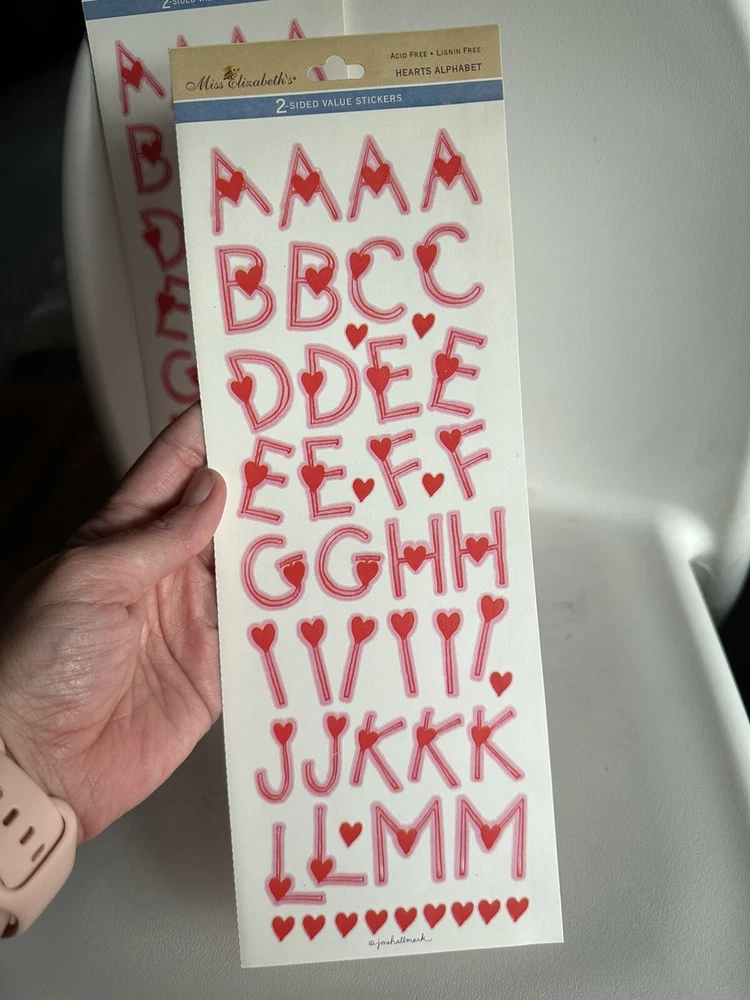 2-SIDED
Miss Elizabeth's®
ACID FREE • LIGNIN FREE
HEARTS ALPHABET
2-SIDED VALUE STICKERS
A A A A
B B C C
D D E E
E E F F
G G H H
I I I I I I
J J K K K
L L M M
@jmshallmark
A
B
D
G